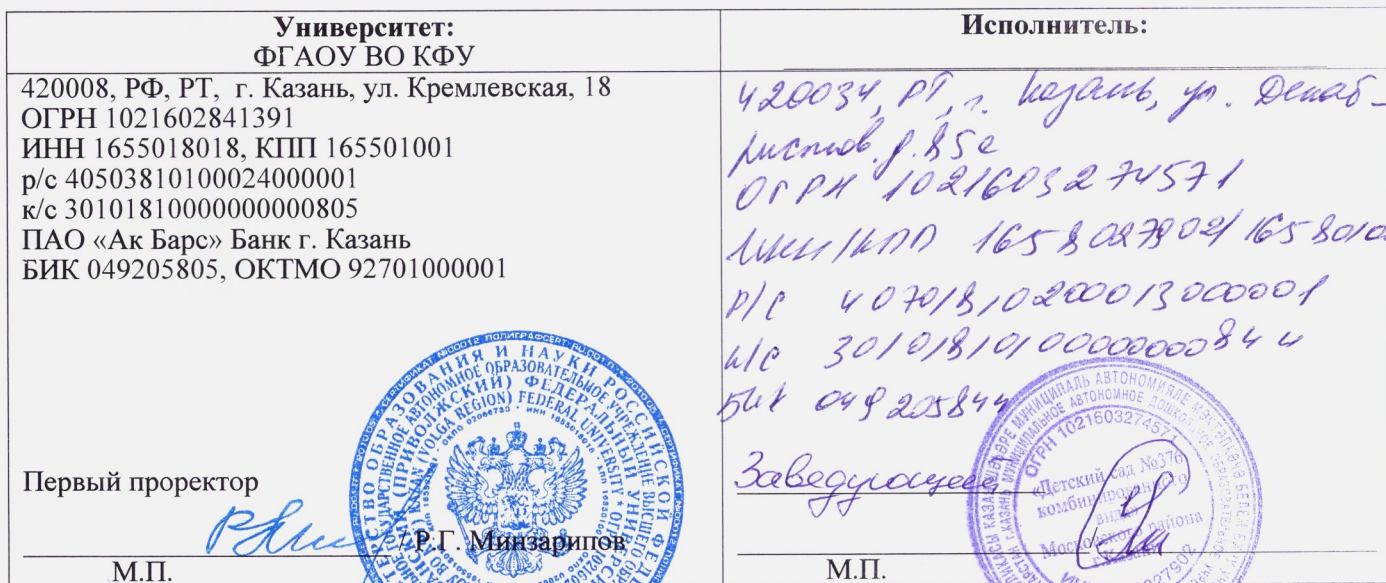 Университет:
ФГАОУ ВО КФУ
420008, РФ, РТ, г. Казань, ул. Кремлевская, 18
ОГРН 1021602841391
ИНН 1655018018, КПП 165501001
р/с 40503810100024000001
к/с 30101810000000000805
ПАО «Ак Барс» Банк г. Казань
БИК 049205805, ОКТМО 92701000001
Первый проректор
/ Р.Г. Минзарипов
М.П.
Исполнитель:
420034, РТ, г. Казань, ул. Декаб-
ристов, д. 85а
ОГРН 1021603274571
ИНН/КПП 1658027902/ 1658010
р/с 40701810200013000001
к/с 30101810100000000844
БИК 049205844
Заведующей
М.П.
ОГРН 1021603274571
«Детский сад №376
комбинированного
вида»
Московского района
KAZAN (VOLGA REGION) FEDERAL UNIVERSITY